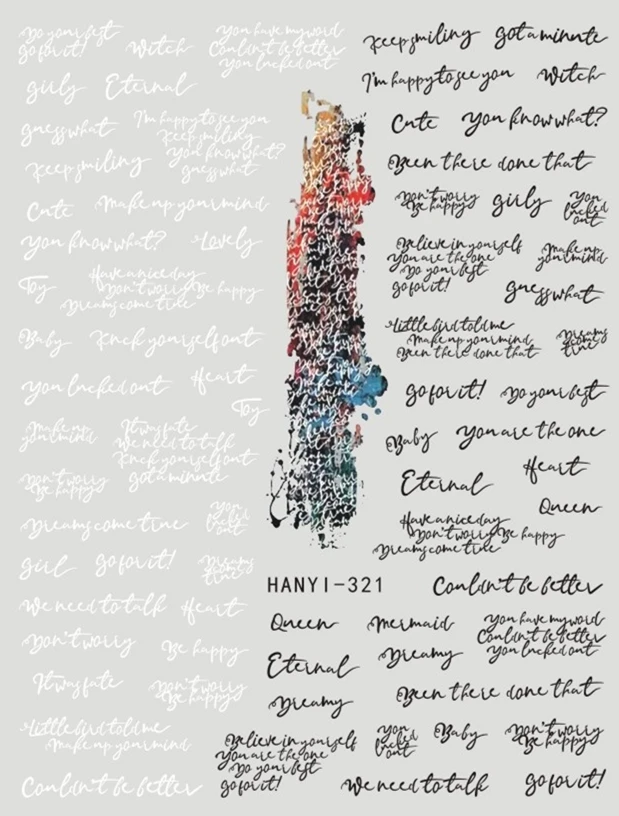 Do your best
go for it!
Witch
You have my word
Couldn't be better
You lucked out
girly
Eternal
guess what
I'm happy to see you
Keep smiling
You know what?
guess what
Keep smiling
Cute
Make up your mind
You know what?
Lovely
Toy
Have a nice day
Don't worry Be happy
Dreams come true
Baby
Knck yourself out
You lucked out
Heart
Toy
Make up
your mind
It was fate
We need to talk
Knck yourself out
got a minute
Don't worry
Be happy
Dreams come true
You
lucked
out
girl
go for it!
Dreams
come
true
We need to talk
Heart
Don't worry
Be happy
It was fate
Don't worry
Be happy
Little bird told me
Make up your mind
Couldn't be better
Keep smiling
got a minute
I'm happy to see you
Witch
Cute
You know what?
Been there done that
Don't worry
Be happy
girly
You
lucked
out
Believe in yourself
You are the one
Do your best
go for it!
Make up
your mind
guess what
Little bird told me
Make up your mind
Been there done that
Dreams
come
true
go for it!
Do your best
Baby
You are the one
Eternal
Heart
Queen
Have a nice day
Don't worry Be happy
Dreams come true
HANYI-321
Couldn't be better
Queen
Mermaid
You have my word
Couldn't be better
You lucked out
Eternal
Dreamy
Dreamy
Been there done that
Believe in yourself
You are the one
Do your best
go for it!
You
lucked
out
Baby
Don't worry
Be happy
We need to talk
go for it!